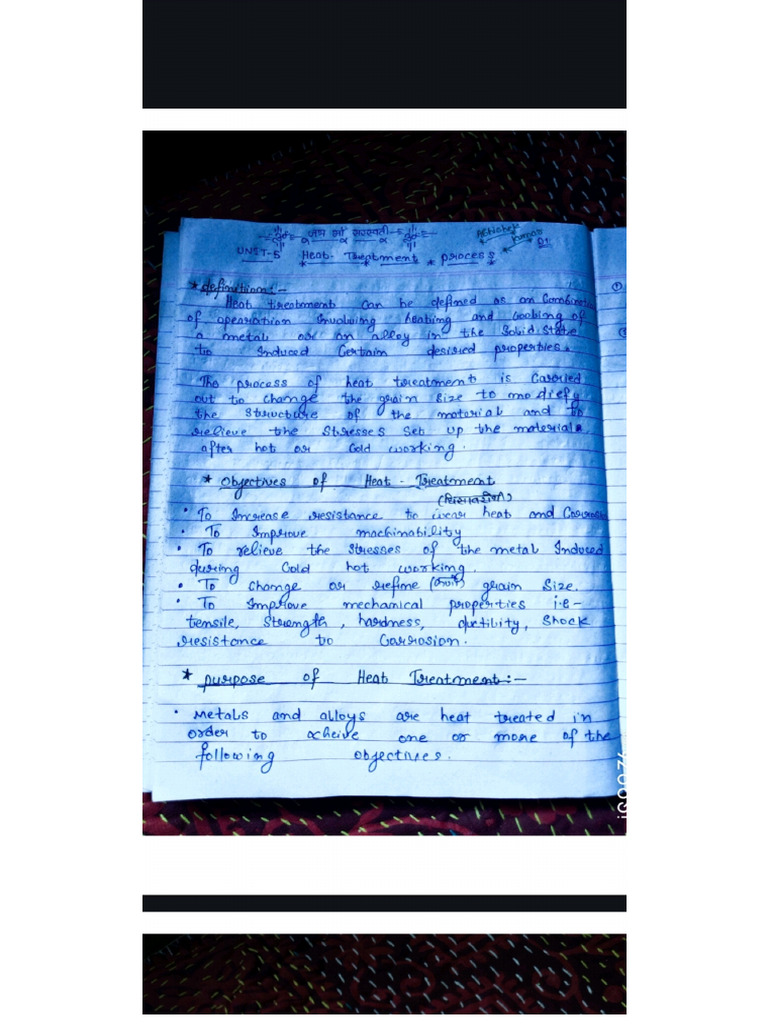 जय माँ सरस्वती
Abhishek
Kumar
01
UNIT-5 Heat- Treatment process
* definition:-
Heat treatment can be defined as an Combination
of opearation Involving heating and Cooling of
a metal or an alloy in the Solid State
to Induced Certain desired properties.
The process of heat treatment is Carried
out to change the grain Size to modiefy
the Structure of the material and to
relieve the Stresses Set up the materials
after hot or Cold working.
* Objectives of Heat - Treatment
• To Increase resistance to wear heat and
• To Improve machinability
• To relieve the Stresses of the metal Induced
during Cold hot working.
• To change or refine grain Size.
• To Improve mechanical properties i.e-
tensile, Strength, hardness, ductility, Shock
resistance to Corrosion.
* purpose of Heat Treatment:-
• Metals and alloys are heat treated in
order to acheive one or more of the
following objectives.